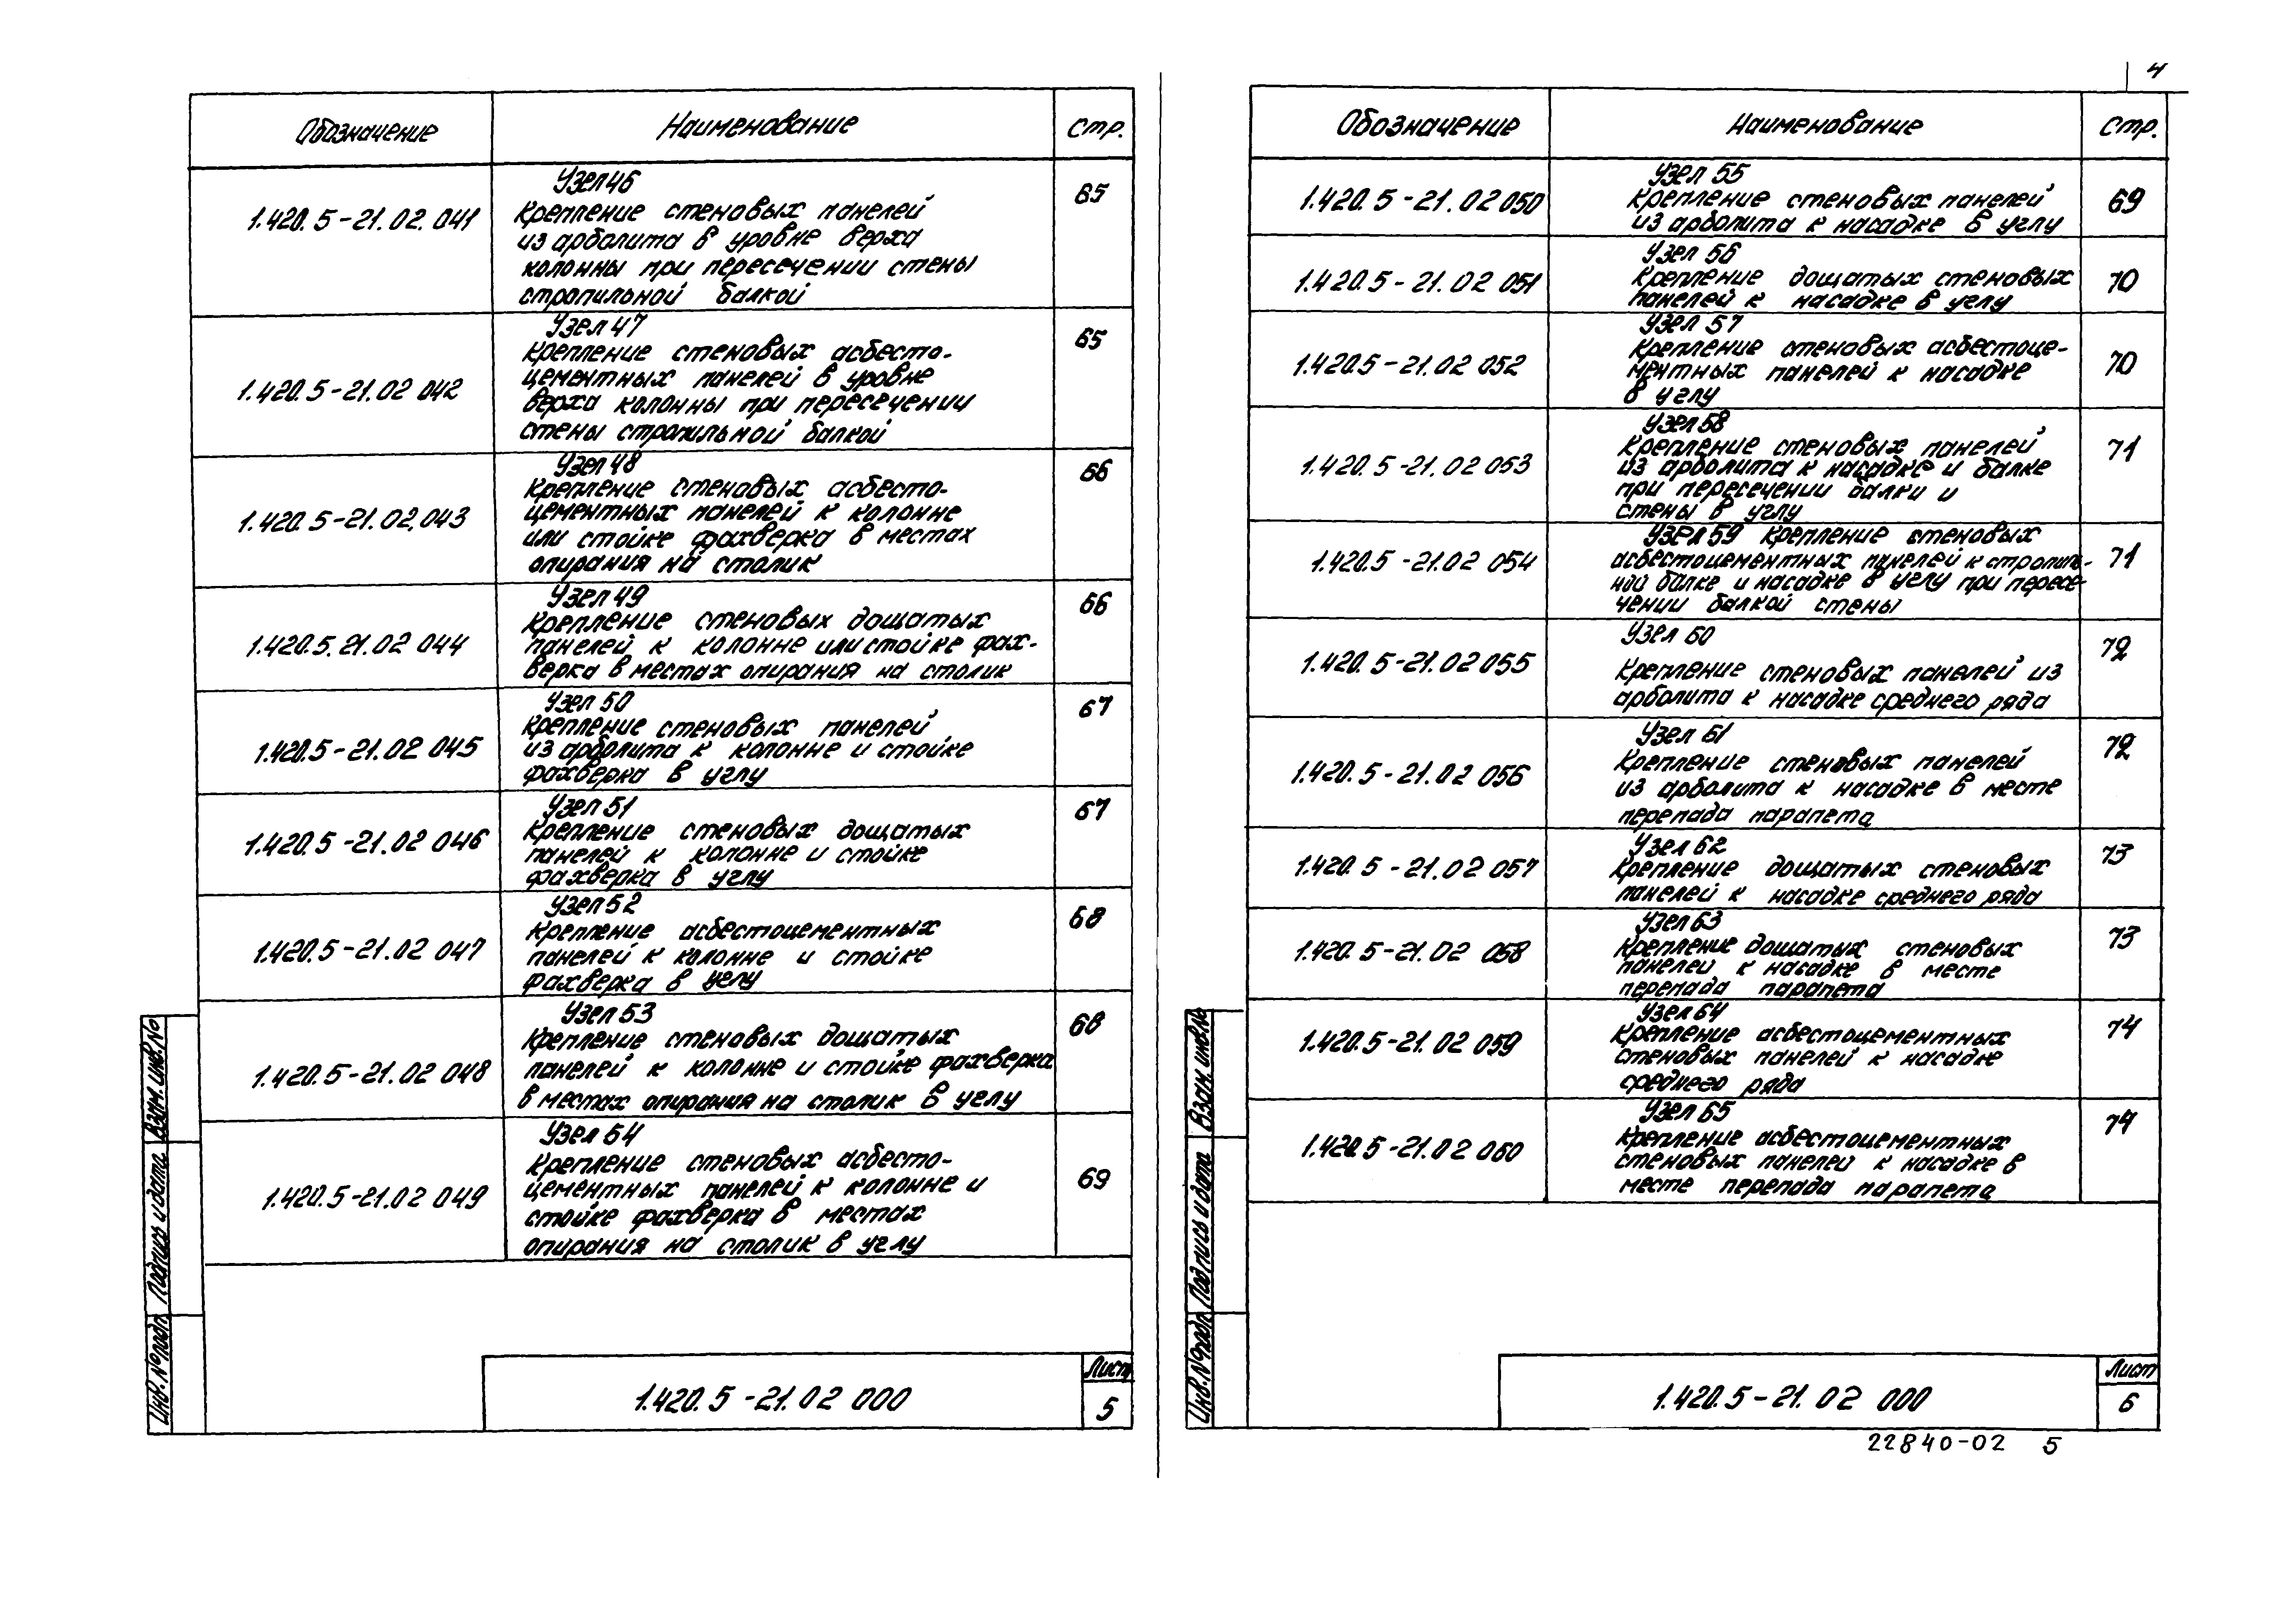 4
Обозначение Наименование Стр.
1.420.5-21.02.041 Узел 46 65
Крепление стеновых панелей
из арболита в уровне верха
колонны при пересечении стены
стропильной балкой
1.420.5-21.02 042 Узел 47 65
Крепление стеновых асбесто-
цементных панелей в уровне
верха колонны при пересечении
стены стропильной балкой
1.420.5-21.02.043 Узел 48 66
Крепление стеновых асбесто-
цементных панелей к колонне
или стойке фахверка в местах
опирания на столик
1.420.5.21.02 044 Узел 49 66
Крепление стеновых дощатых
панелей к колонне или стойке фах-
верка в местах опирания на столик
1.420.5-21.02 045 Узел 50 67
Крепление стеновых панелей
из арболита к колонне и стойке
фахверка в углу
1.420.5-21.02 046 Узел 51 67
Крепление стеновых дощатых
панелей к колонне и стойке
фахверка в углу
1.420.5-21.02 047 Узел 52 68
Крепление асбестоцементных
панелей к колонне и стойке
фахверка в углу
1.420.5-21.02 048 Узел 53 68
Крепление стеновых дощатых
панелей к колонне и стойке фахверка
в местах опирания на столик в углу
1.420.5-21.02 049 Узел 54 69
Крепление стеновых асбесто-
цементных панелей к колонне и
стойке фахверка в местах
опирания на столик в углу
Инв. № подп. Подпись и дата Взам. инв. №
1.420.5-21.02 000 Лист
5
Обозначение Наименование Стр.
1.420.5-21.02 050 Узел 55 69
Крепление стеновых панелей
из арболита к насадке в углу
1.420.5-21.02 051 Узел 56 70
Крепление дощатых стеновых
панелей к насадке в углу
1.420.5-21.02 052 Узел 57 70
Крепление стеновых асбестоце-
ментных панелей к насадке
в углу
1.420.5-21.02 053 Узел 58 71
Крепление стеновых панелей
из арболита к насадке и балке
при пересечении балки и
стены в углу
1.420.5-21.02 054 Узел 59 Крепление стеновых 71
асбестоцементных панелей к стропиль-
ной балке и насадке в углу при пересе-
чении балкой стены
1.420.5-21.02 055 Узел 60 72
Крепление стеновых панелей из
арболита к насадке среднего ряда
1.420.5-21.02 056 Узел 61 72
Крепление стеновых панелей
из арболита к насадке в месте
перепада парапета
1.420.5-21.02 057 Узел 62 73
Крепление дощатых стеновых
панелей к насадке среднего ряда
1.420.5-21.02 058 Узел 63 73
Крепление дощатых стеновых
панелей к насадке в месте
перепада парапета
1.420.5-21.02 059 Узел 64 74
Крепление асбестоцементных
стеновых панелей к насадке
среднего ряда
1.420.5-21.02 060 Узел 65 74
Крепление асбестоцементных
стеновых панелей к насадке в
месте перепада парапета
Инв. № подп. Подпись и дата Взам. инв. №
1.420.5-21.02 000 Лист
6
22840-02 5